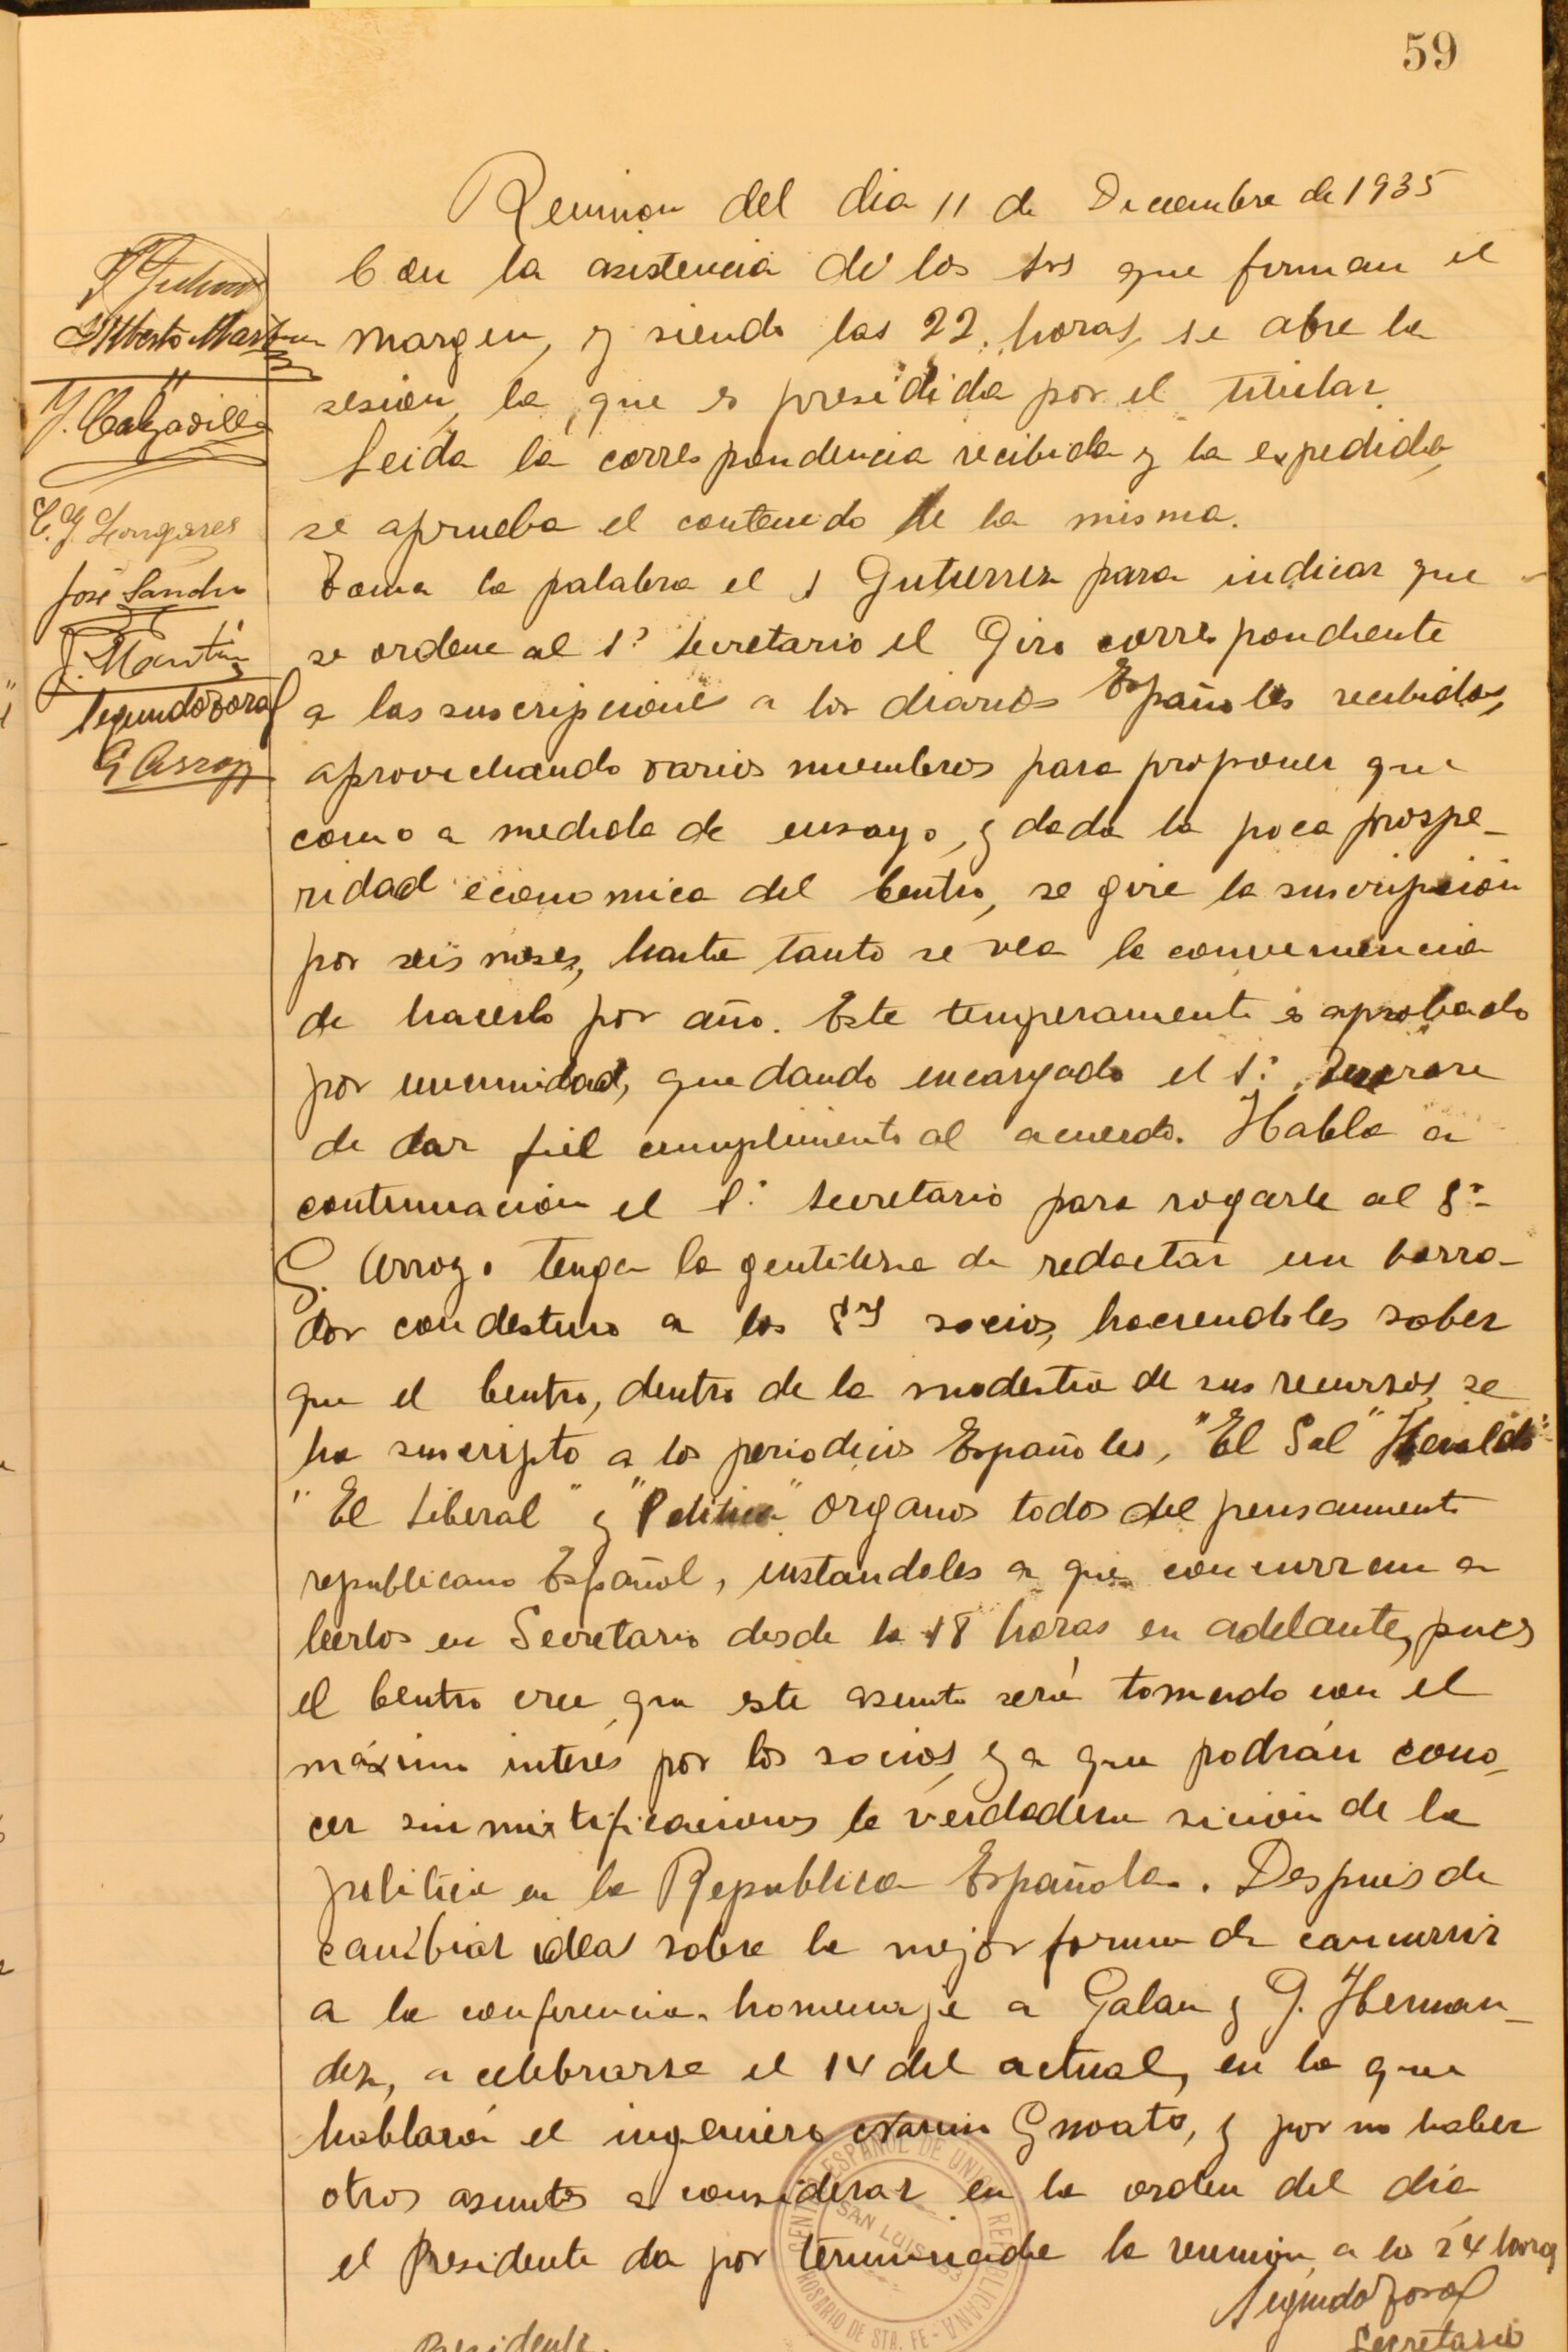 59
Reunion del dia 11 de Diciembre de 1935
Con la asistencia de los Srs que firman el
margen, y siendo las 22 horas, se abre la
sesión, la que es presidida por el titular.
Leida la correspondencia recibida y la expedida,
se aprueba el contenido de la misma.
Toma la palabra el S Gutierrez para indicar que
se ordene al Sº Secretario el Giro correspondiente
a las suscripciones a los diarios Españoles recibidos,
aprovechando varios miembros para proponer que
como a medida de ensayo, y dada la poca prospe-
ridad economica del Centro, se gire la suscripción
por seis meses, hasta tanto se vea la conveniencia
de hacerlo por año. Este temperamento es aprobado
por unanimidad, quedando encargado el Sº
de dar fiel cumplimiento al acuerdo. Habla a
continuación el Sº Secretario para rogarle al Sº
G. Arroyo tenga la gentileza de redactar un borra-
dor con destino a los Srs socios, haciendoles saber
que el Centro, dentro de la modestia de sus recursos, se
ha suscripto a los periodicos Españoles, "El Sol" "Heraldo"
"El Liberal" y "Politica" organos todos del pensamiento
republicano Español, instandoles a que concurran a
leerlos en Secretaria desde la 18 horas en adelante, pues
el Centro cree que este asunto será tomado con el
máximo interés por los socios, ya que podrán cono-
cer sin mixtificaciones la verdadera de la
politica en la Republica Española. Despues de
cambiar ideas sobre la mejor forma de concurrir
a la conferencia homenaje a Galan y G. Hernan-
dez, a celebrarse el 14 del actual, en la que
hablará el ingeniero Gnoato, y por no haber
otros asuntos a considerar en la orden del día
el Presidente da por terminada la reunión a la 24 horas
Alberto Martin
J. Calzadilla
C. G. Longares
José Sancho
J. Martín
Segundo Toral
G Arroyo
CENTRO ESPAÑOL DE UNION REPUBLICANA
SAN LUIS
ROSARIO DE STA. FE
Segundo Toral
Presidente.
Secretario